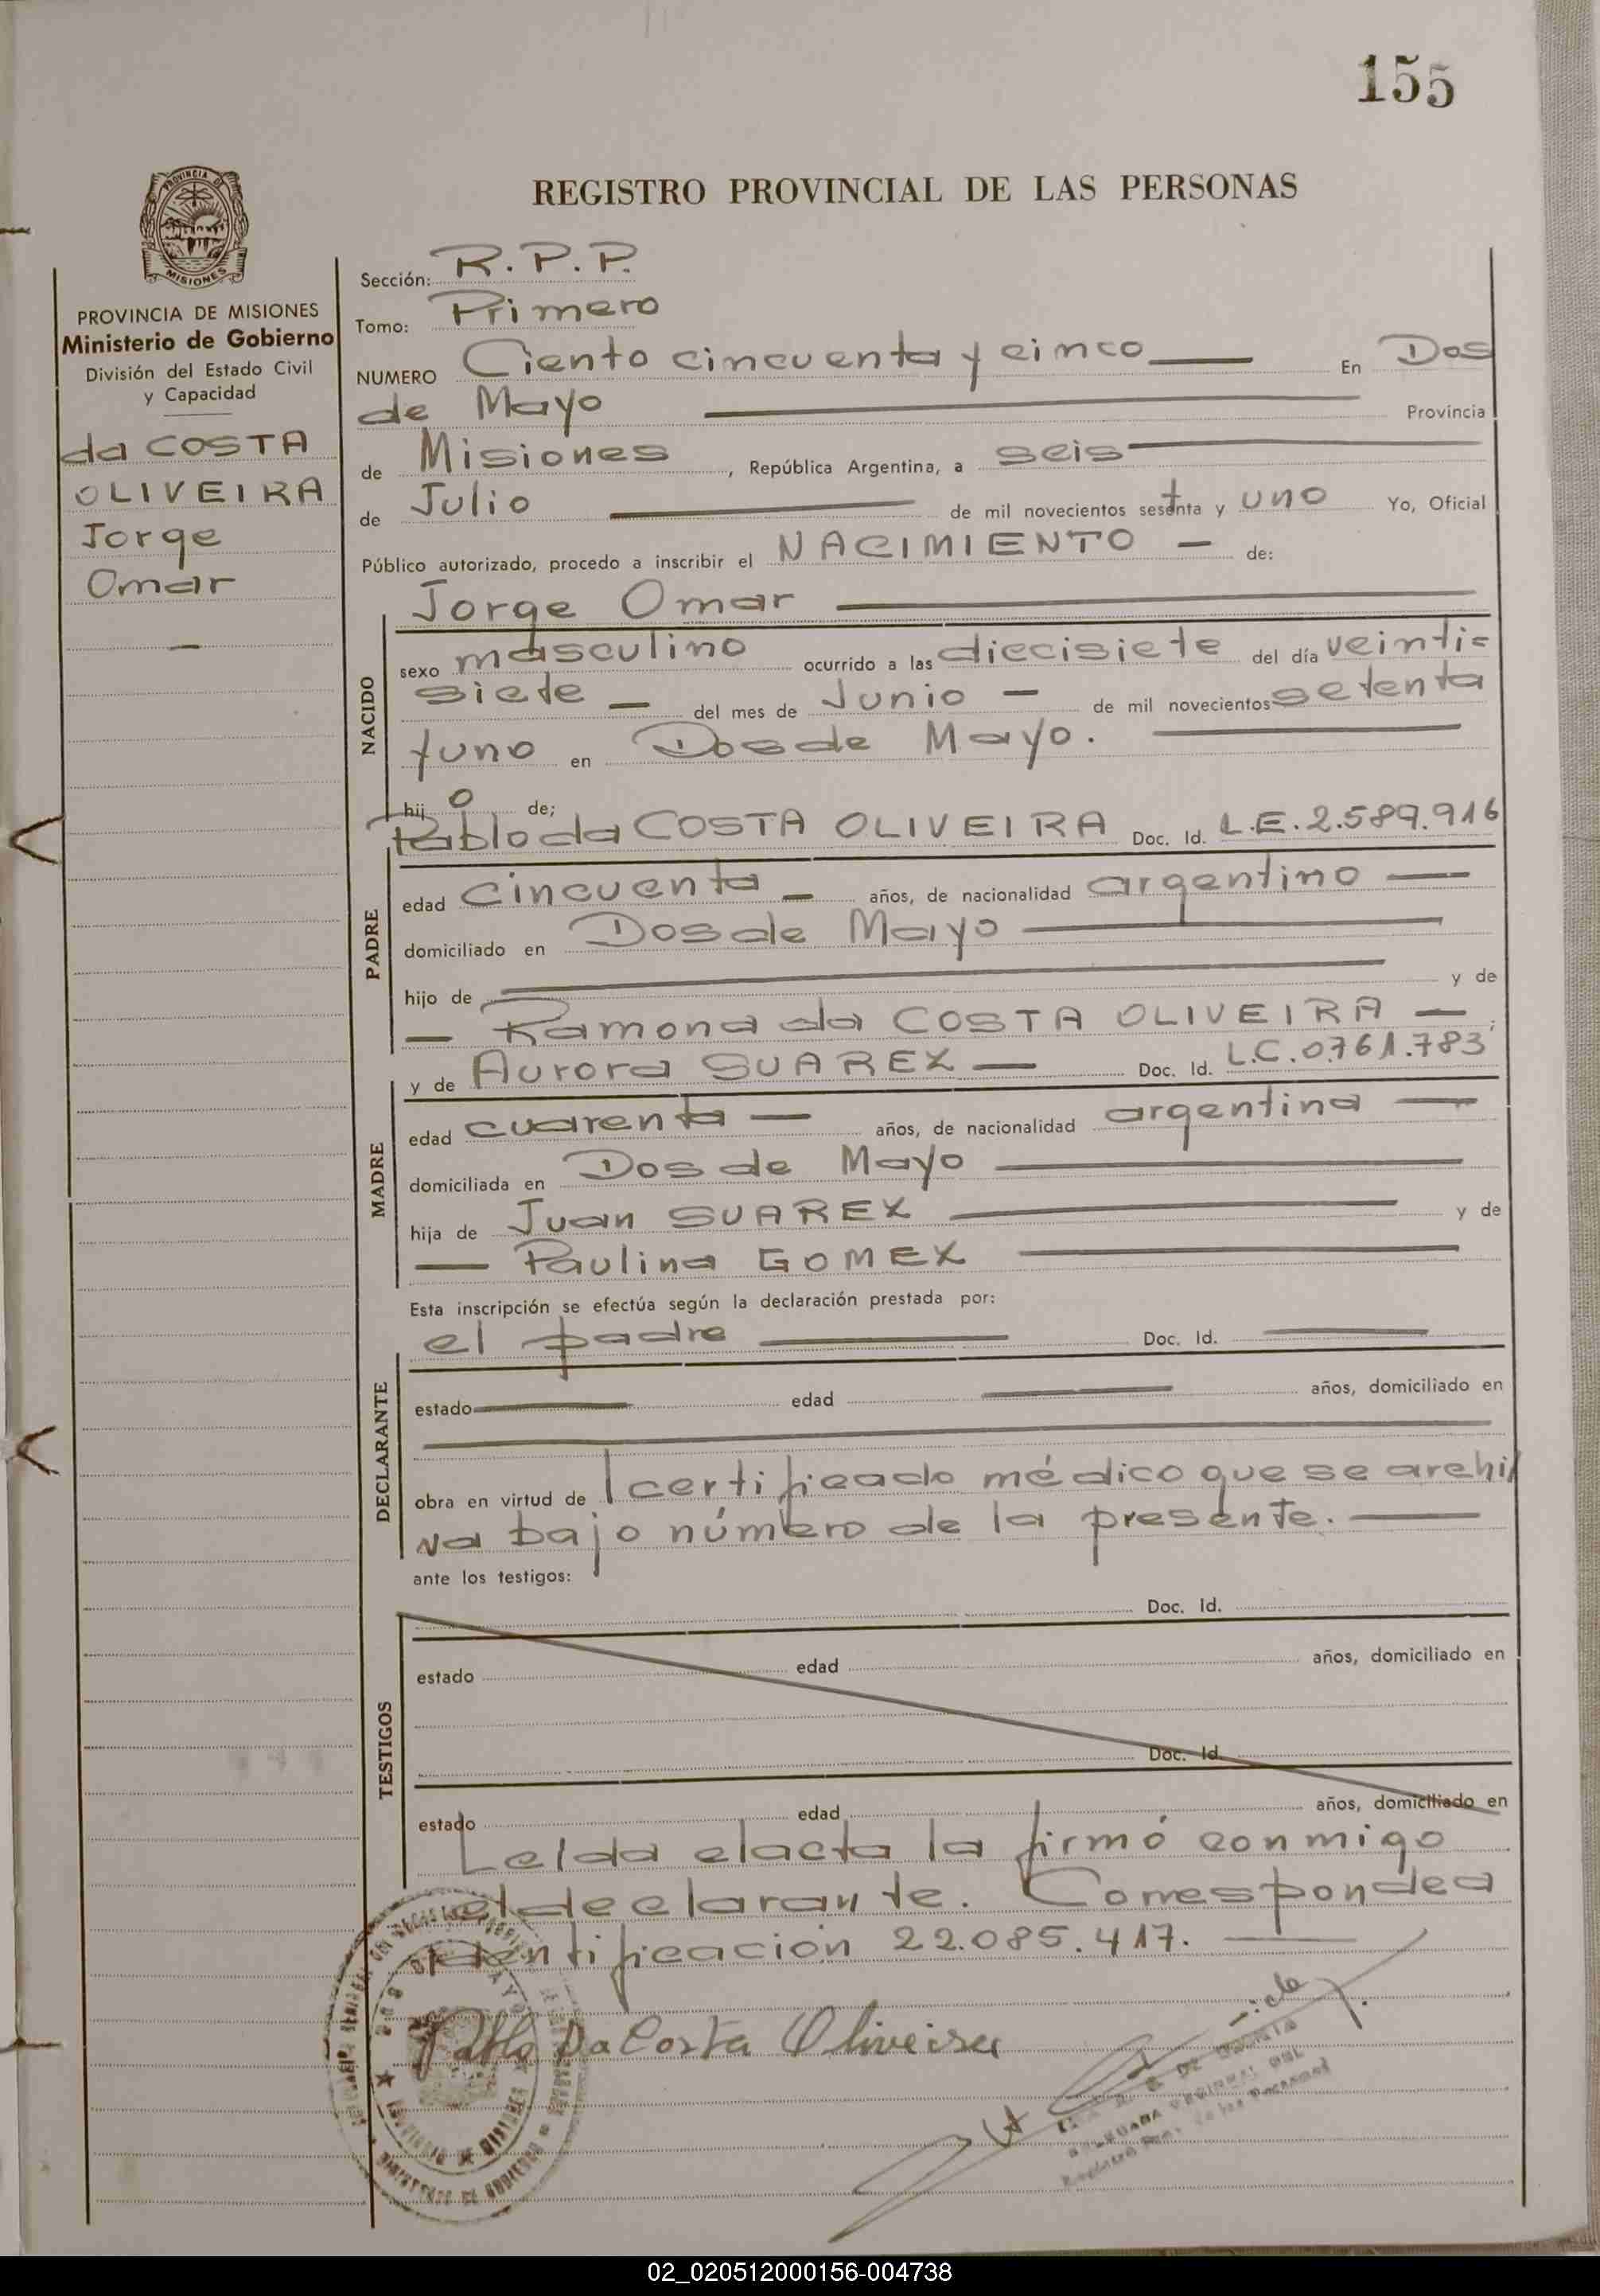 155
REGISTRO PROVINCIAL DE LAS PERSONAS
PROVINCIA DE
MISIONES
PROVINCIA DE MISIONES
Ministerio de Gobierno
División del Estado Civil
y Capacidad
da COSTA
OLIVEIRA
Jorge
Omar
Sección: R.P.P.
Tomo: Primero
NUMERO Ciento cincuenta y cinco En Dos
de Mayo Provincia
de Misiones, República Argentina, a seis
de Julio de mil novecientos setenta y uno Yo, Oficial
Público autorizado, procedo a inscribir el NACIMIENTO - de:
Jorge Omar
NACIDO
sexo masculino ocurrido a las diecisiete del día veinti=
siete - del mes de Junio - de mil novecientos setenta
yuno en Dos de Mayo.
hijo de;
Pablo da COSTA OLIVEIRA Doc. Id. L.E. 2.589.916
PADRE
edad cincuenta - años, de nacionalidad argentino
domiciliado en Dos de Mayo
hijo de y de
- Ramona da COSTA OLIVEIRA -
y de Aurora SUAREZ - Doc. Id. L.C. 0.761.783
MADRE
edad cuarenta - años, de nacionalidad argentina
domiciliada en Dos de Mayo
hija de Juan SUAREZ y de
- Paulina GOMEZ
Esta inscripción se efectúa según la declaración prestada por:
el padre Doc. Id.
DECLARANTE
estado edad años, domiciliado en
obra en virtud de certificado médico que se archi
va bajo número de la presente.
ante los testigos:
Doc. Id.
TESTIGOS
estado edad años, domiciliado en
Doc. Id.
estado edad años, domiciliado en
Leida elacta la firmó conmigo
el declarante. Corresponde a
identificación 22.085.417.
Pablo Da Costa Oliveira
DELEGADA REGIONAL DEL
02_020512000156-004738